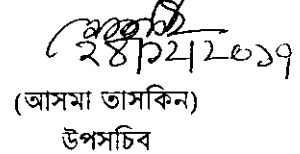 ২৪|১২|২০১৭
(আসমা তাসকিন)
উপসচিব